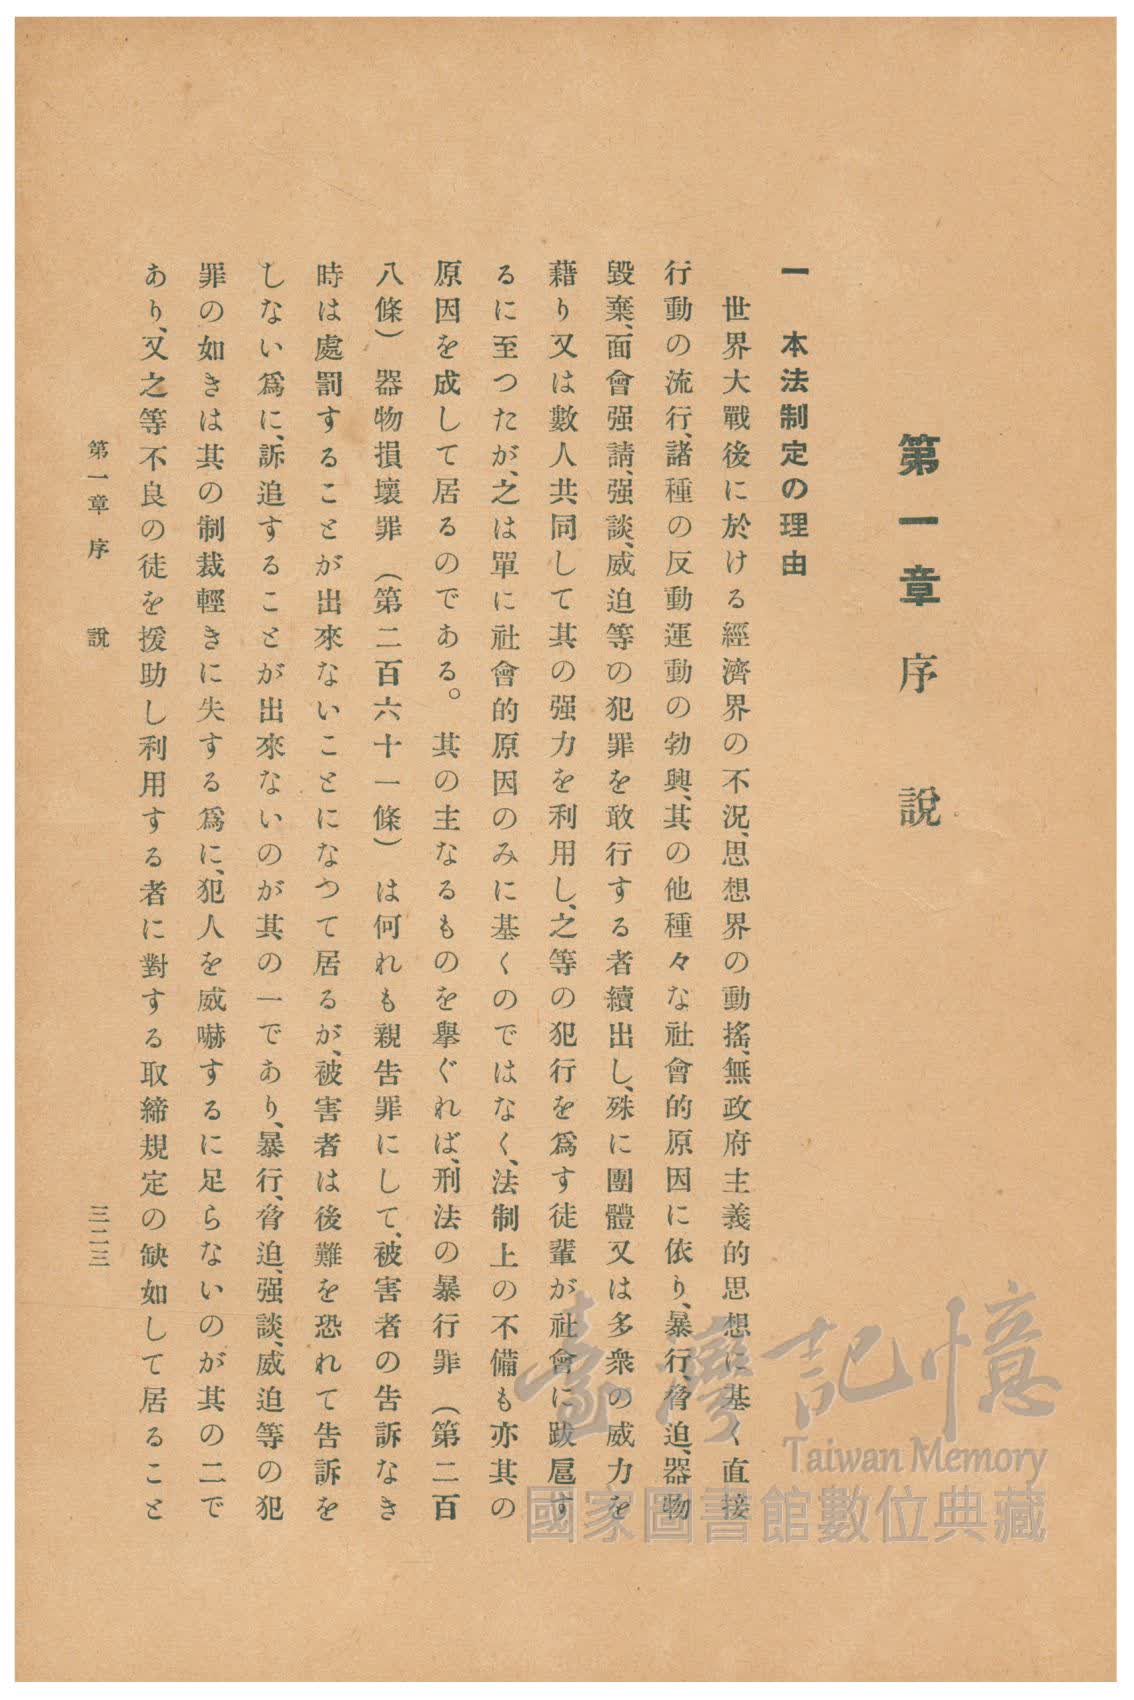 第一章 序說
一 本法制定の理由
世界大戰後に於ける經濟界の不況、思想界の動搖、無政府主義的思想に基く直接
行動の流行、諸種の反動運動の勃興、其の他種々な社會的原因に依り、暴行、脅迫、器物
毀棄、面會强請、强談、威迫等の犯罪を敢行する者續出し、殊に團體又は多衆の威力を
藉り又は數人共同して其の强力を利用し、之等の犯行を爲す徒輩が社會に跋扈す
るに至つたが、之は單に社會的原因のみに基くのではなく、法制上の不備も亦其の
原因を成して居るのである。其の主なるものを擧ぐれば、刑法の暴行罪（第二百
八條）器物損壞罪（第二百六十一條）は何れも親告罪にして、被害者の告訴なき
時は處罰することが出來ないことになつて居るが、被害者は後難を恐れて告訴を
しない爲に、訴追することが出來ないのが其の一であり、暴行、脅迫、强談、威迫等の犯
罪の如きは其の制裁輕きに失する爲に、犯人を威嚇するに足らないのが其の二で
あり、又之等不良の徒を援助し利用する者に對する取締規定の缺如して居ること
第一章 序說
三二三
臺灣記憶
Taiwan Memory
國家圖書館數位典藏